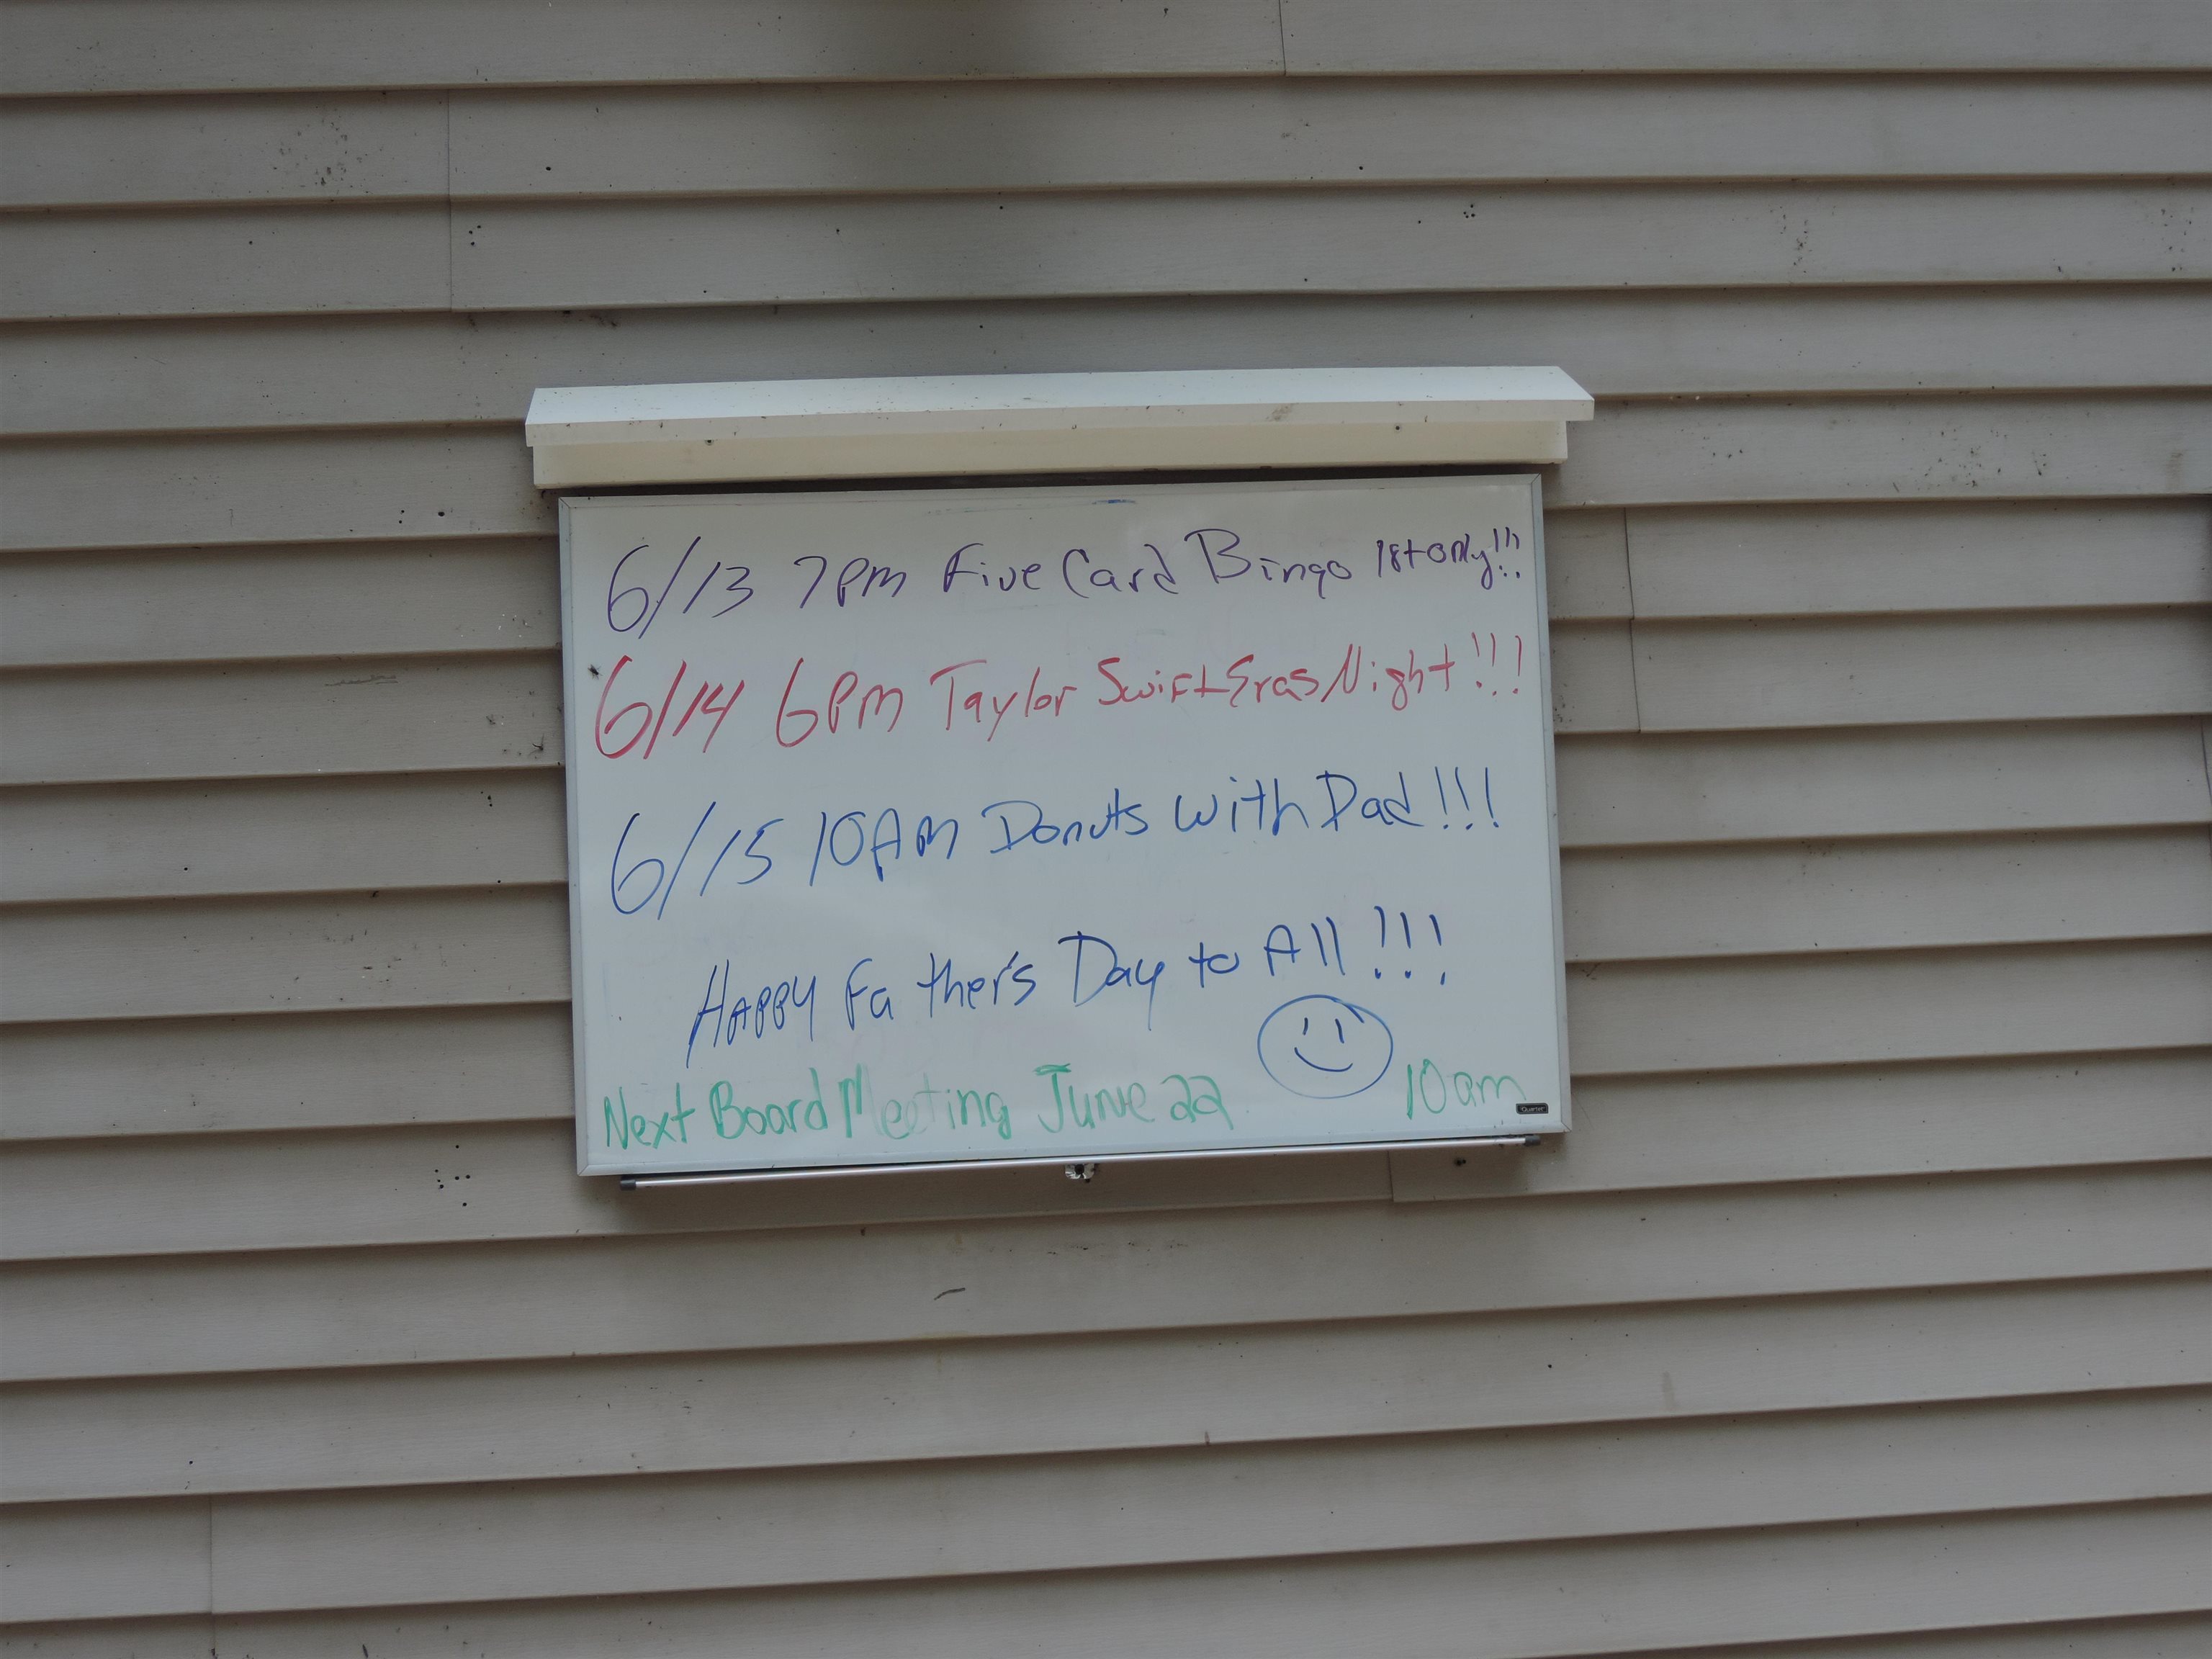 6/13 7pm Five Card Bingo 18+ only!!!
6/14 6pm Taylor Swift Eras Night!!!
6/15 10AM Donuts with Dad!!!
HAPPY Father's Day to All!!!
Next Board Meeting June 22 10am
Quartet